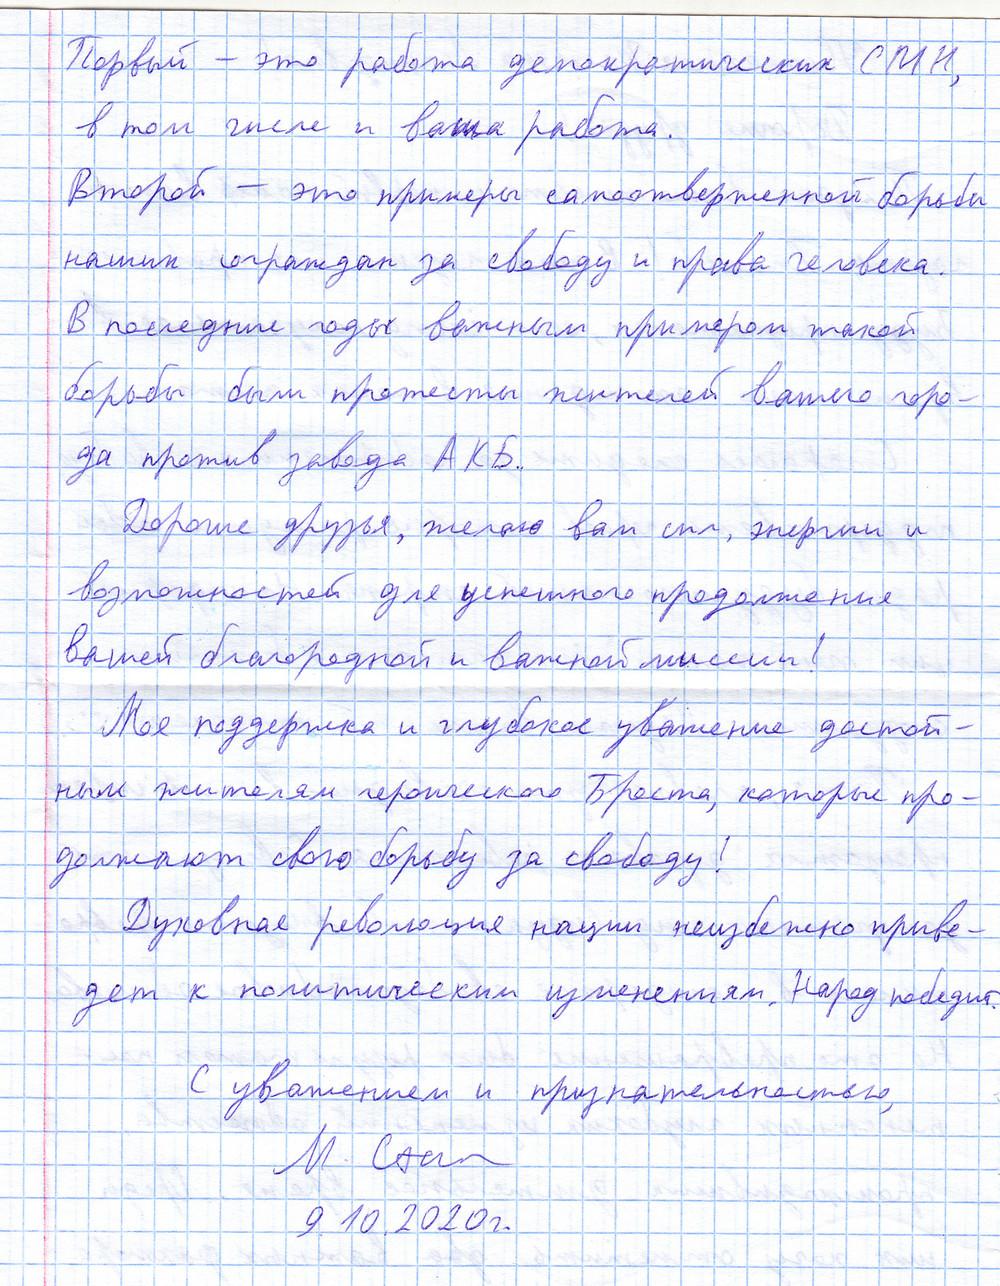 Первый – это работа демократических СМИ,
в том числе и ваша работа.
Второй – это примеры самоотверженной борьбы
наших сограждан за свободу и права человека.
В последние годы важным примером такой
борьбы были протесты жителей вашего горо-
да против завода АКБ.
Дорогие друзья, желаю вам сил, энергии и
возможностей для успешного продолжения
вашей благородной и важной миссии!
Моя поддержка и глубокое уважение достой-
ным жителям героического Бреста, которые про-
должают свою борьбу за свободу!
Духовная революция нации неизбежно приве-
дет к политическим изменениям. Народ победит.
С уважением и признательностью,
М.
9.10.2020г.